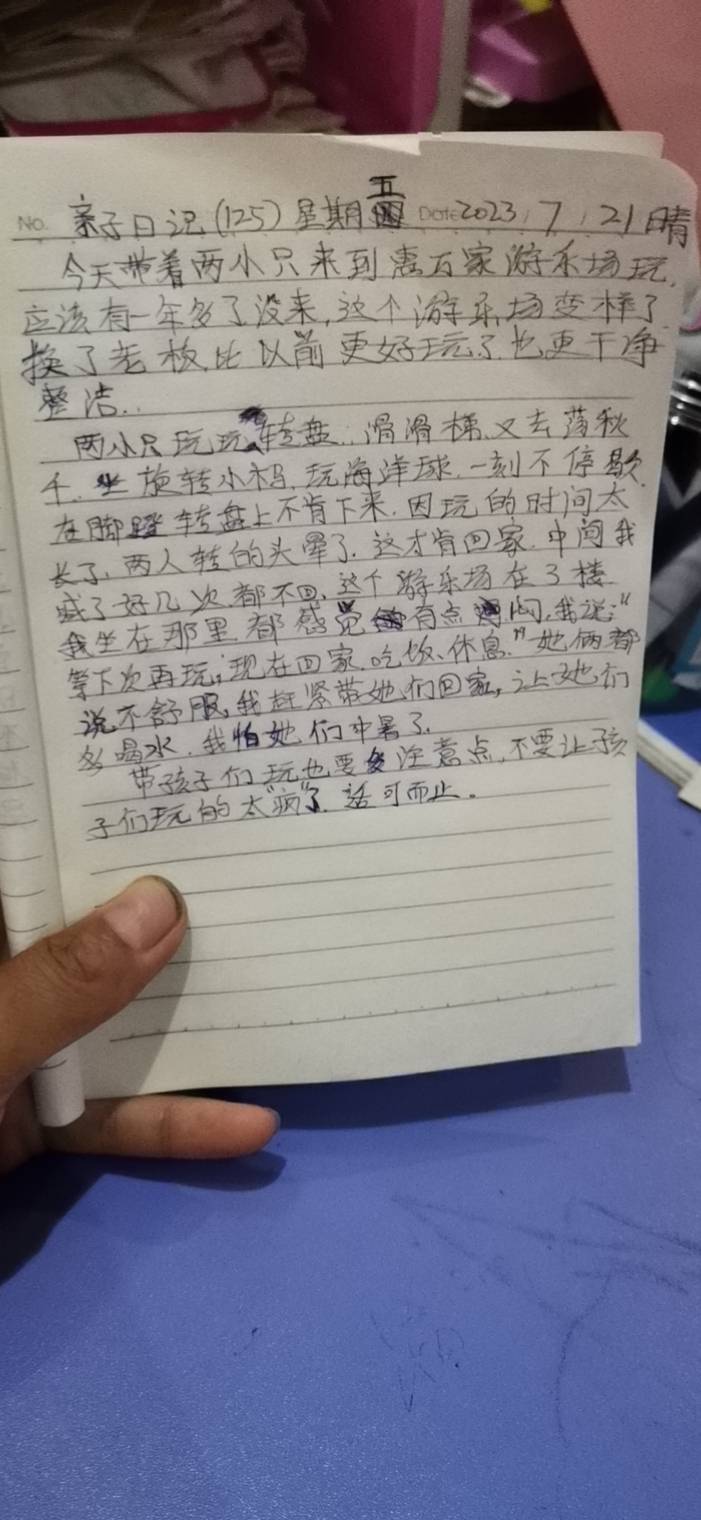 No. 亲子日记(125) 星期五 Date 2023.7.21 晴
今天带着两小只来到惠万家游乐场玩,
应该有一年多了没来,这个游乐场变样了
换了老板比以前更好玩了也更干净
整洁..
两小只玩玩转盘..滑滑梯.又去荡秋
千.坐旋转小木马.玩海洋球.一刻不停歇.
在脚蹬转盘上不肯下来.因玩的时间太
长了,两人转的头晕了.这才肯回家.中间我
喊了好几次都不回,这个游乐场在3楼
我坐在那里都感觉有点闷,我说:“
等下次再玩;现在回家.吃饭、休息.”她俩都
说不舒服,我赶紧带她们回家,让她们
多喝水.我怕她们中暑了.
带孩子们玩也要注意点,不要让孩
子们玩的太“疯”了.适可而止.